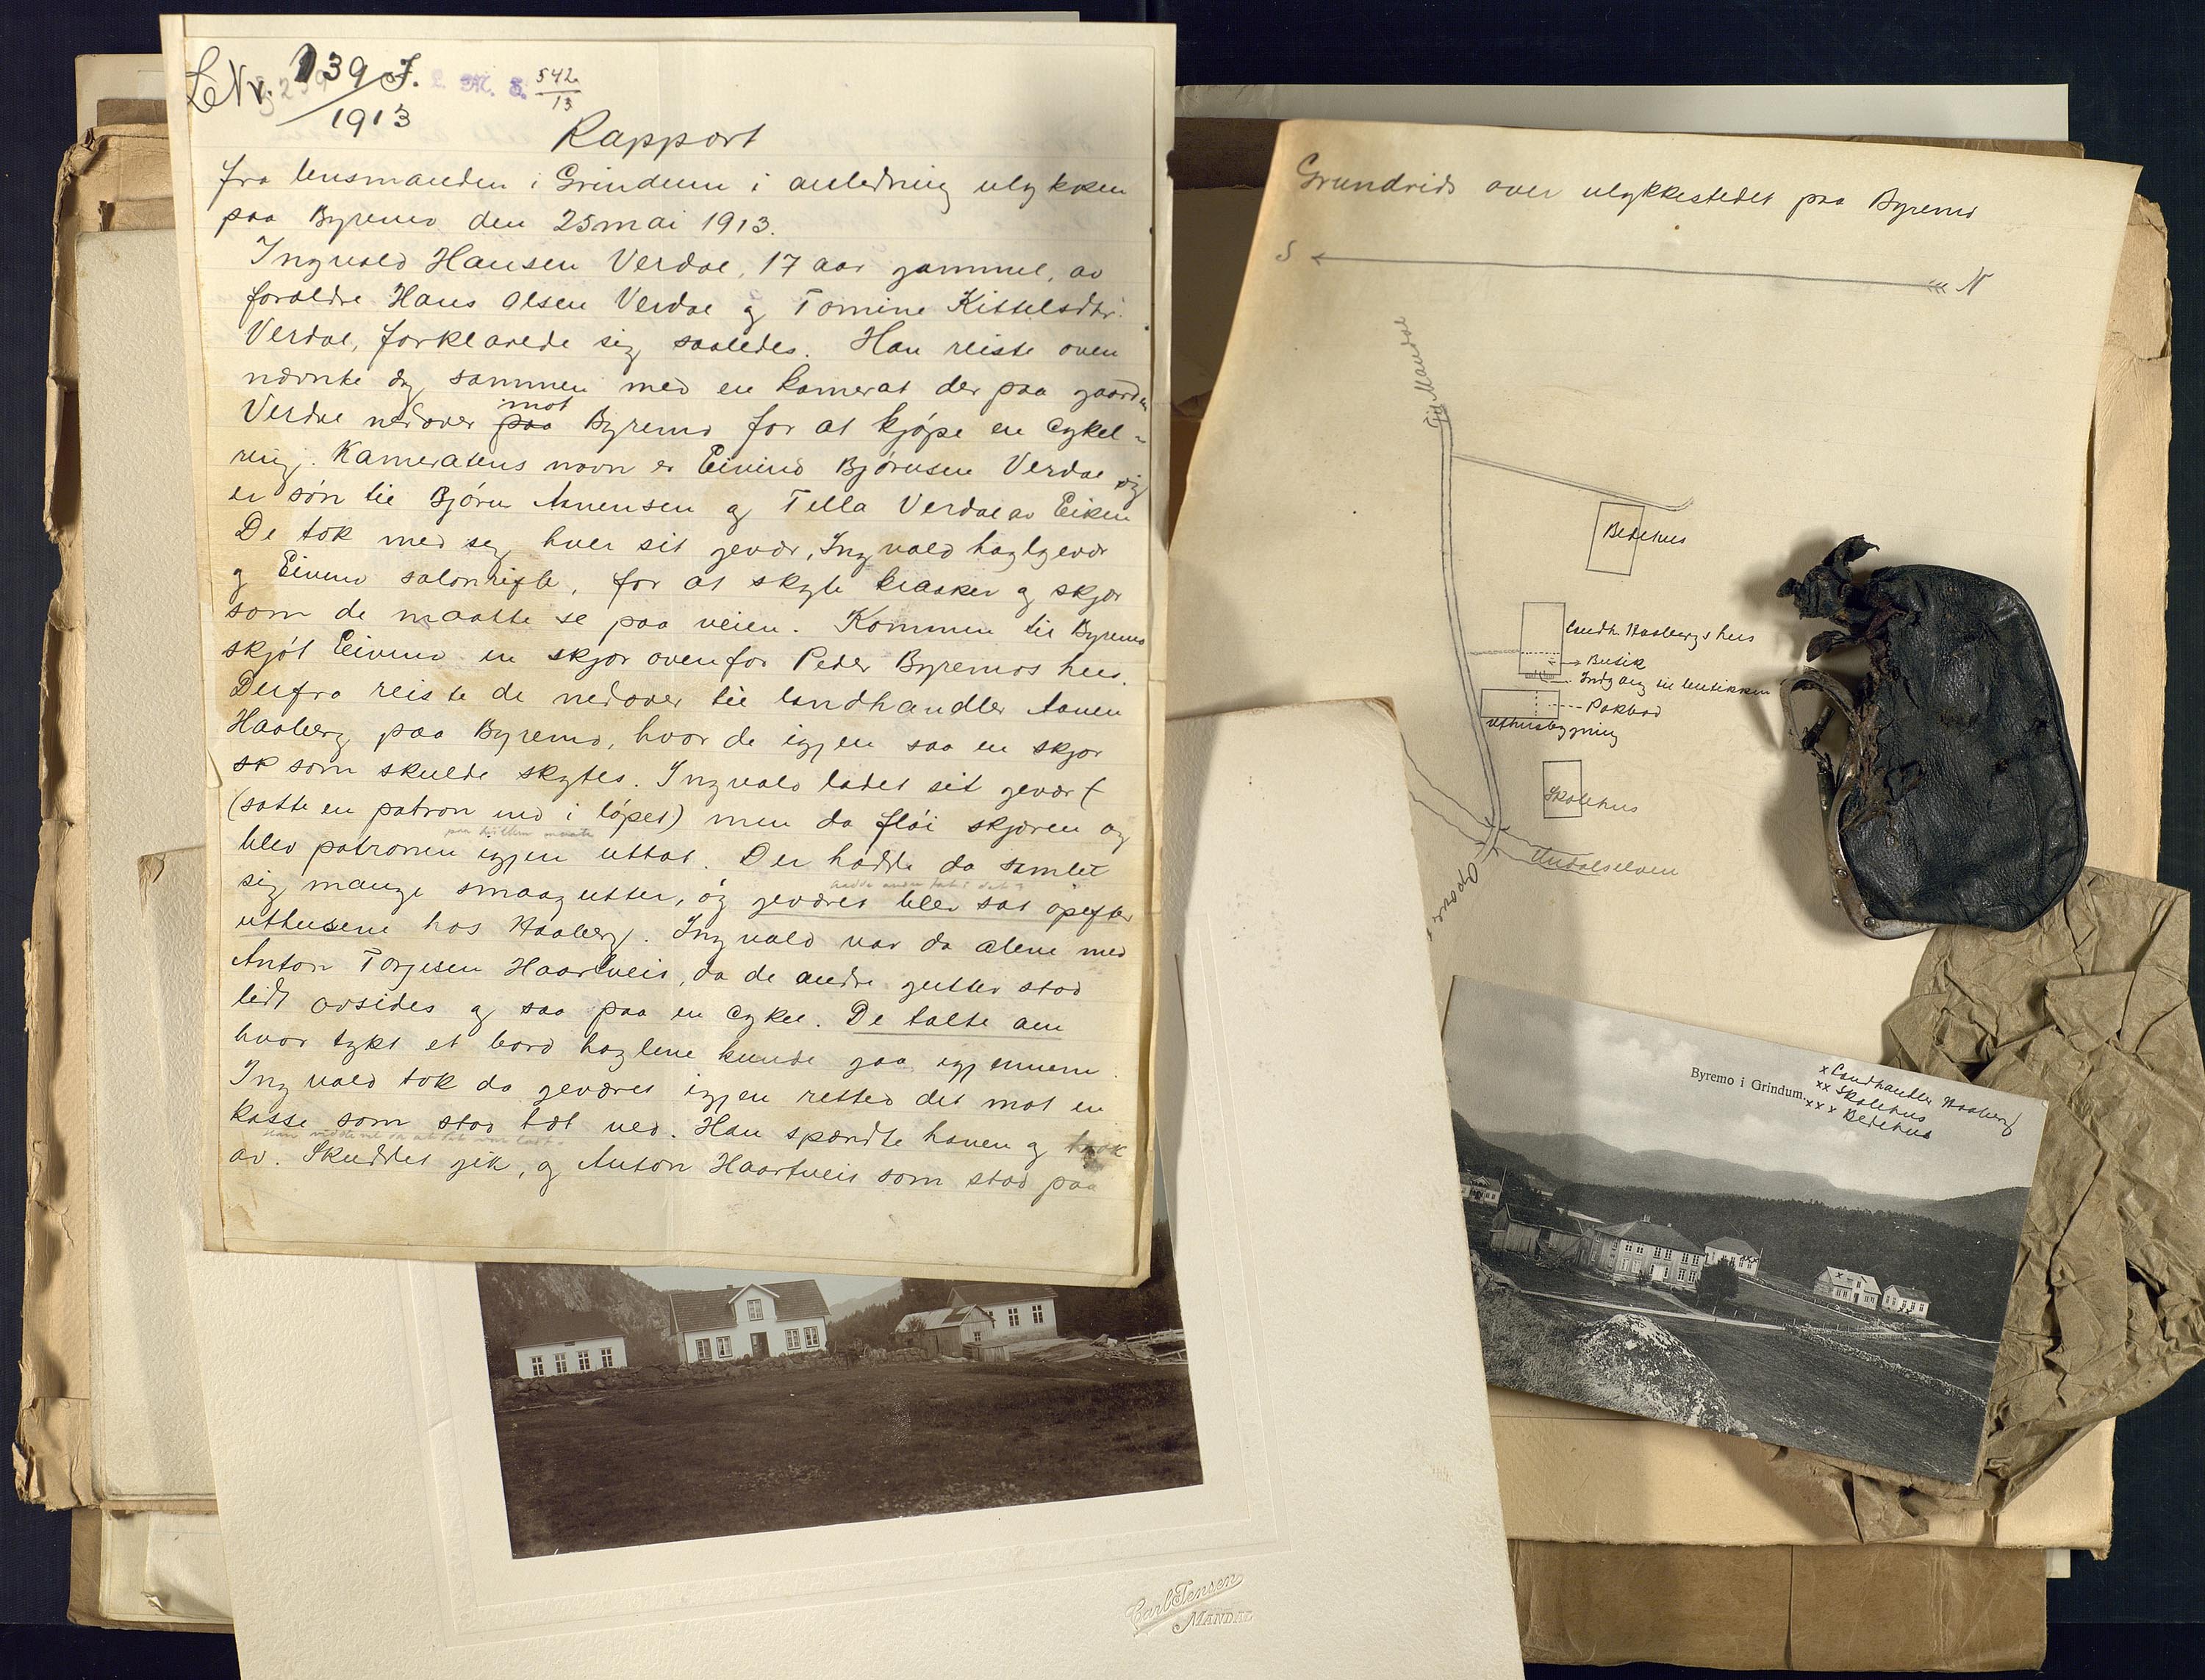 L Nr. 139 J. L. M. S. 542
1913 13
Rapport
fra lensmanden i Grindum i anledning ulykken
paa Byremo den 25 mai 1913.
Ingvald Hansen Verdal, 17 aar gammel, av
foraldre Hans Olsen Verdal og Tomine Kittelsdtr.
Verdal, forklarede sig saaledes. Han reiste oven
nævnte dag sammen med en kamerat der paa gaarden
mot
Verdal nedover paa Byremo for at kjøpe en cykel-
ring. Kameratens navn er Eivind Bjørnsen Verdal og
er søn til Bjørn Aanensen og Tella Verdal av Eiken
De tok med seg hver sit gevær, Ingvald haglgevær
og Eivind salonrifle, for at skyte kraaker og skjær
som de maatte se paa veien. Kommen til Byremo
skjøt Eivind en skjær ovenfor Peder Byremos hus.
Derfra reiste de nedover til landhandler Aanen
Haaberg paa Byremo, hvor de igjen saa en skjær
sk som skulde skytes. Ingvald ladet sit gevær (
(satte en patron ind i løpet) men da fløi skjæren og
paa hvilken maate
blev patronen igjen uttat. Der hadde da samlet
sig mange smaagutter, og geværet blev sat opefter
hadde andre fat i det?
uthusene hos Haaberg. Ingvald var da alene med
Anton Torjesen Haartveit, da de andre gutter stod
lidt avsides og saa paa en cykel. De talte om
hvor tykt et bord haglene kunde gaa igjennem.
Ingvald tok da geværet igjen rettet det mot en
kasse som stod tæt ved. Han spændte hanen og trak
av. Skuddet gik, og Anton Haartveit som stod paa
Grundrids over ulykkestedet paa Byremo
S N
Til Mandal
Bedehus
landh. Haabergs hus
Butik
Indgang til butikken
Pakbod
Uthusbygning
Skolehus
Undalselven
Byremo i Grindum.
x Landhandler Haaberg
xx Skolehus
xxx Bedehus
Carl Jensen
MANDAL